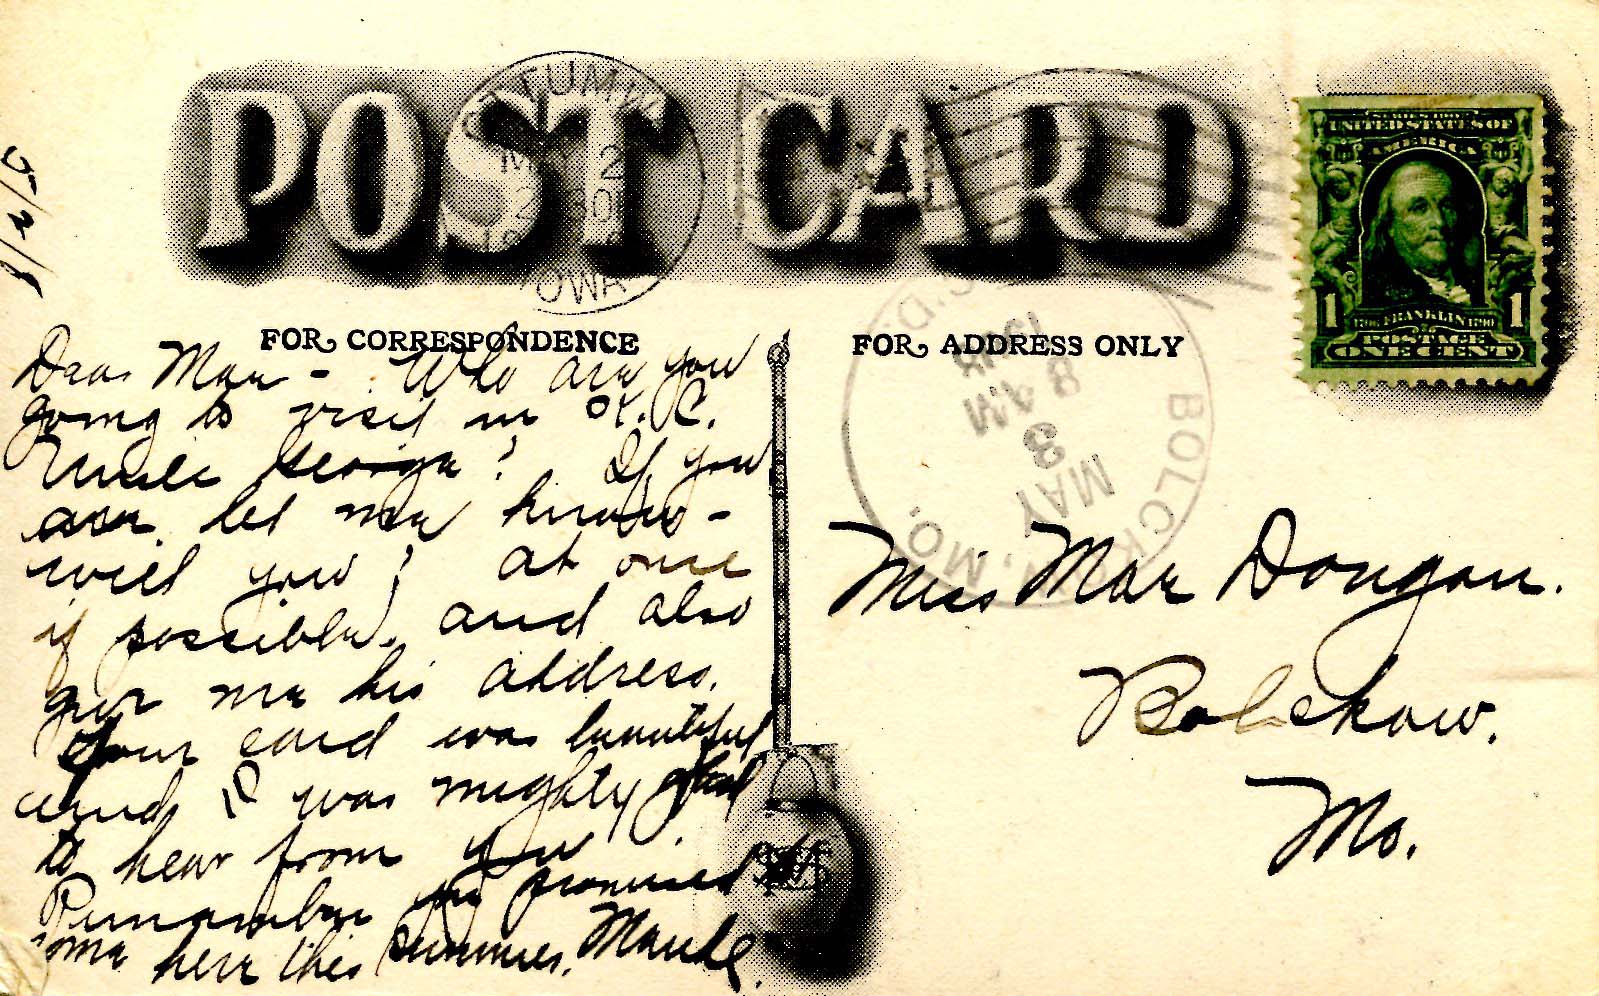 POST CARD
OTTUMWA
MAY 2
2 30
IOWA
SERIES 1902
UNITED STATES OF
AMERICA
1 FRANKLIN 1
POSTAGE
ONE CENT
5/2/8
FOR CORRESPONDENCE
FOR ADDRESS ONLY
BOLCKOW, MO.
MAY
3
8 AM
REC'D.
Dear Mae - Who are you
going to visit in K.C.
Uncle George? If you
are. let me know -
will you? at once
if possible. and also
give me his address.
Your card was beautiful
and I was mighty glad
to hear from you
Remember you promised
come here this summer. Maude.
Miss Mae Dougan.
Bolckow.
Mo.